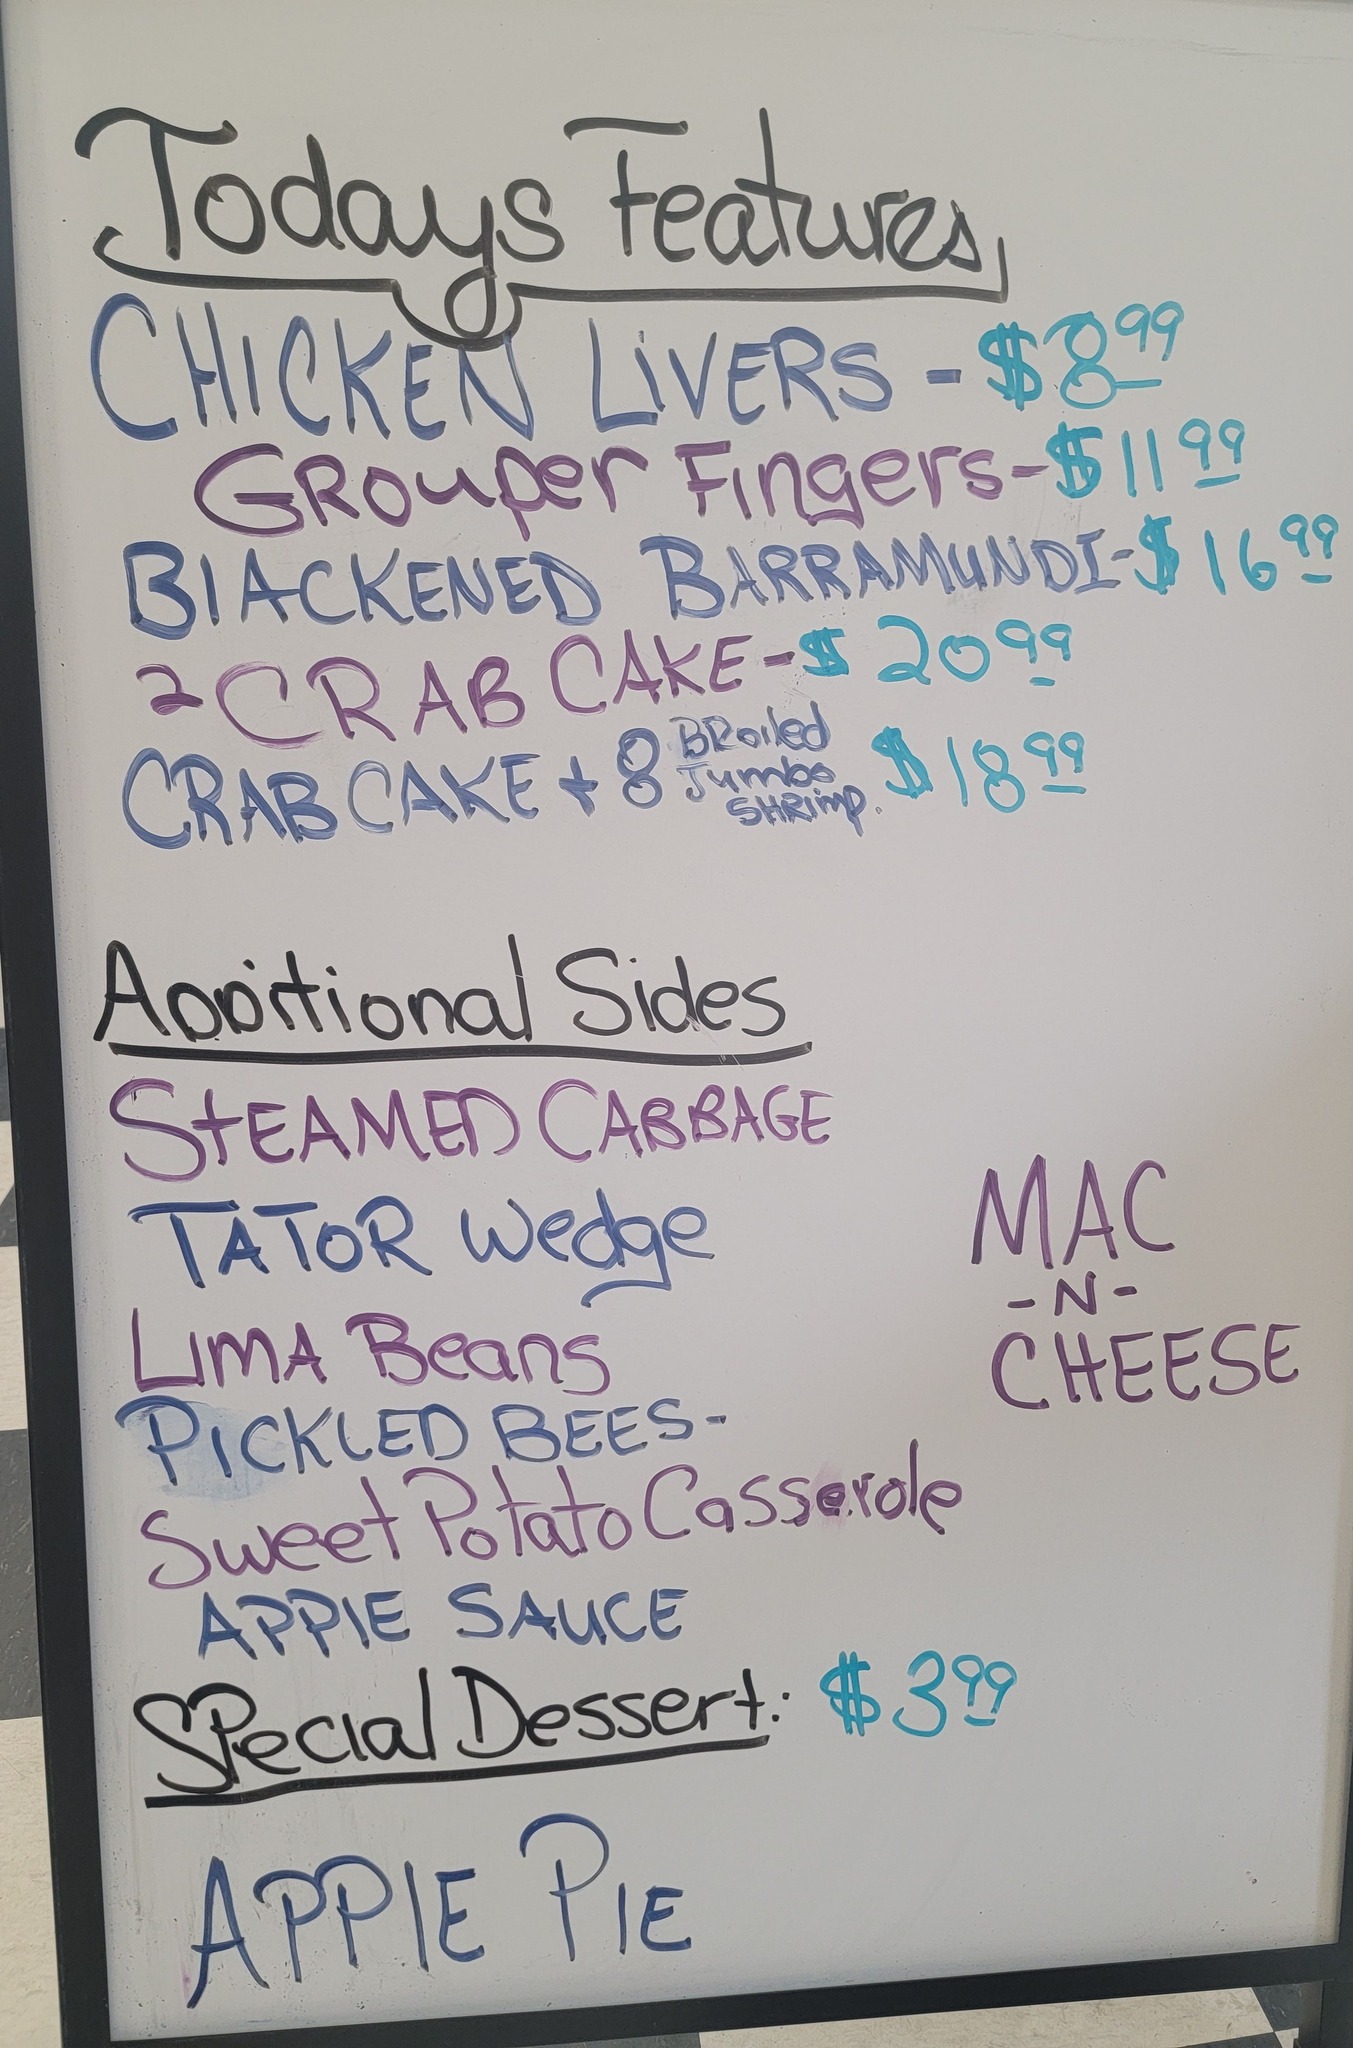 Todays Features
CHICKEN LIVERS - $8.99
Grouper Fingers - $11.99
BLACKENED BARRAMUNDI - $16.99
2 CRAB CAKE - $20.99
CRAB CAKE + 8 BRoiled Jumbo SHRimp. $18.99
Additional Sides
STEAMED CABBAGE
TATOR Wedge
LIMA Beans
PICKLED BEES-
Sweet Potato Casserole
APPLE SAUCE
MAC
-N-
CHEESE
Special Dessert: $3.99
APPLE PIE